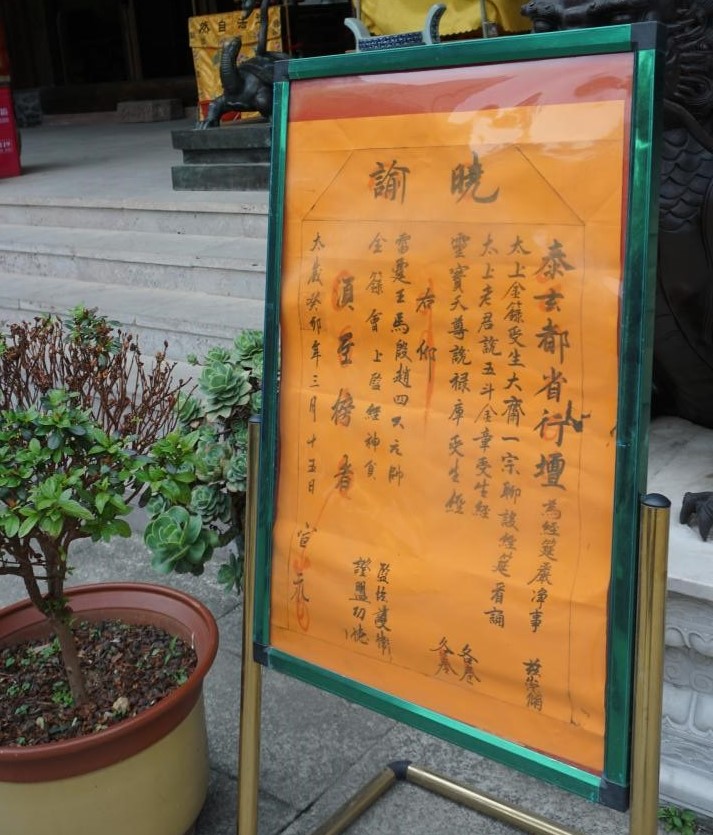 曉諭
泰玄都省行壇 為經筵嚴淨事
太上金籙受生大齋一宗聊設經筵看誦
太上老君說五斗金章受生經
各卷
靈寶天尊說祿庫受生經
各卷
右仰
雷霆王馬殷趙四大元帥
金籙會上啟經神員
證盟功德
須至榜者
太歲癸卯年三月十五日 宣
法自然